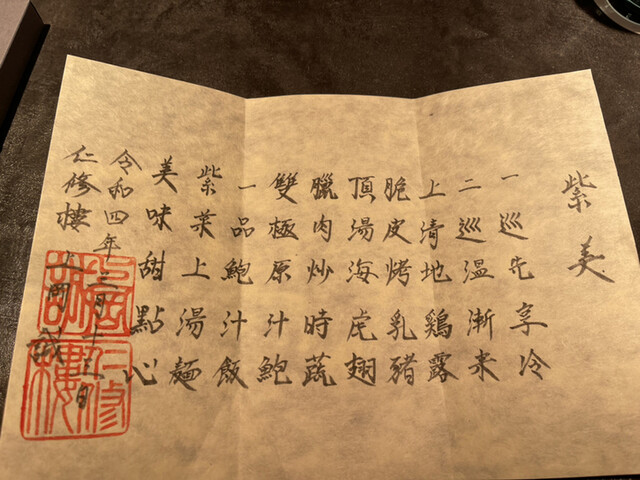 紫美
一巡先享冷
二巡温漸来
上清地鶏露
脆皮烤乳豬
頂湯海虎翅
臘肉炒時蔬
雙極原汁鮑
一品鮑汁飯
紫菜上湯麺
美味甜點心
令和四年三月十
仁修樓
上岡誠